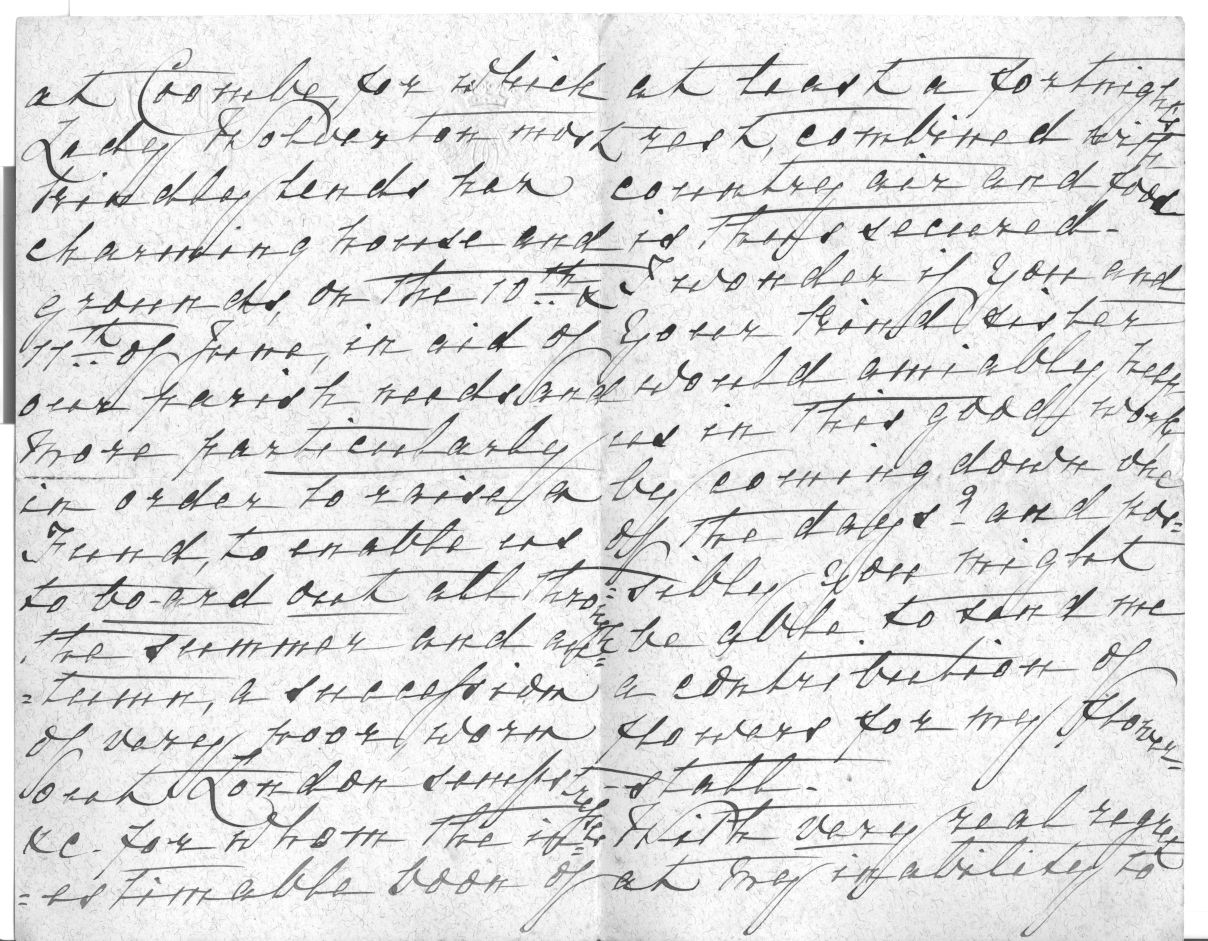 at Coombe, for which
Lady Wolverton most
kindly lends her
charming house and
grounds, on the 10th &
11th of June, in aid of
our parish needs and
more particularly
in order to raise a
Fund, to enable us
to board out all thro'
the summer and au=
=tumn, a succession
of very poor worn
out London sempstresses
&c. for whom the in=
=estimable boon of
at least a fortnight's
rest, combined with
country air and food
is thus secured.
I wonder if you and
your kind sister
would amiably help
us in this good work
by coming down one
of the days? and pos=
=sibly you might
be able to send me
a contribution of
flowers for my flower=
=stall.
With very real regret
at my inability to